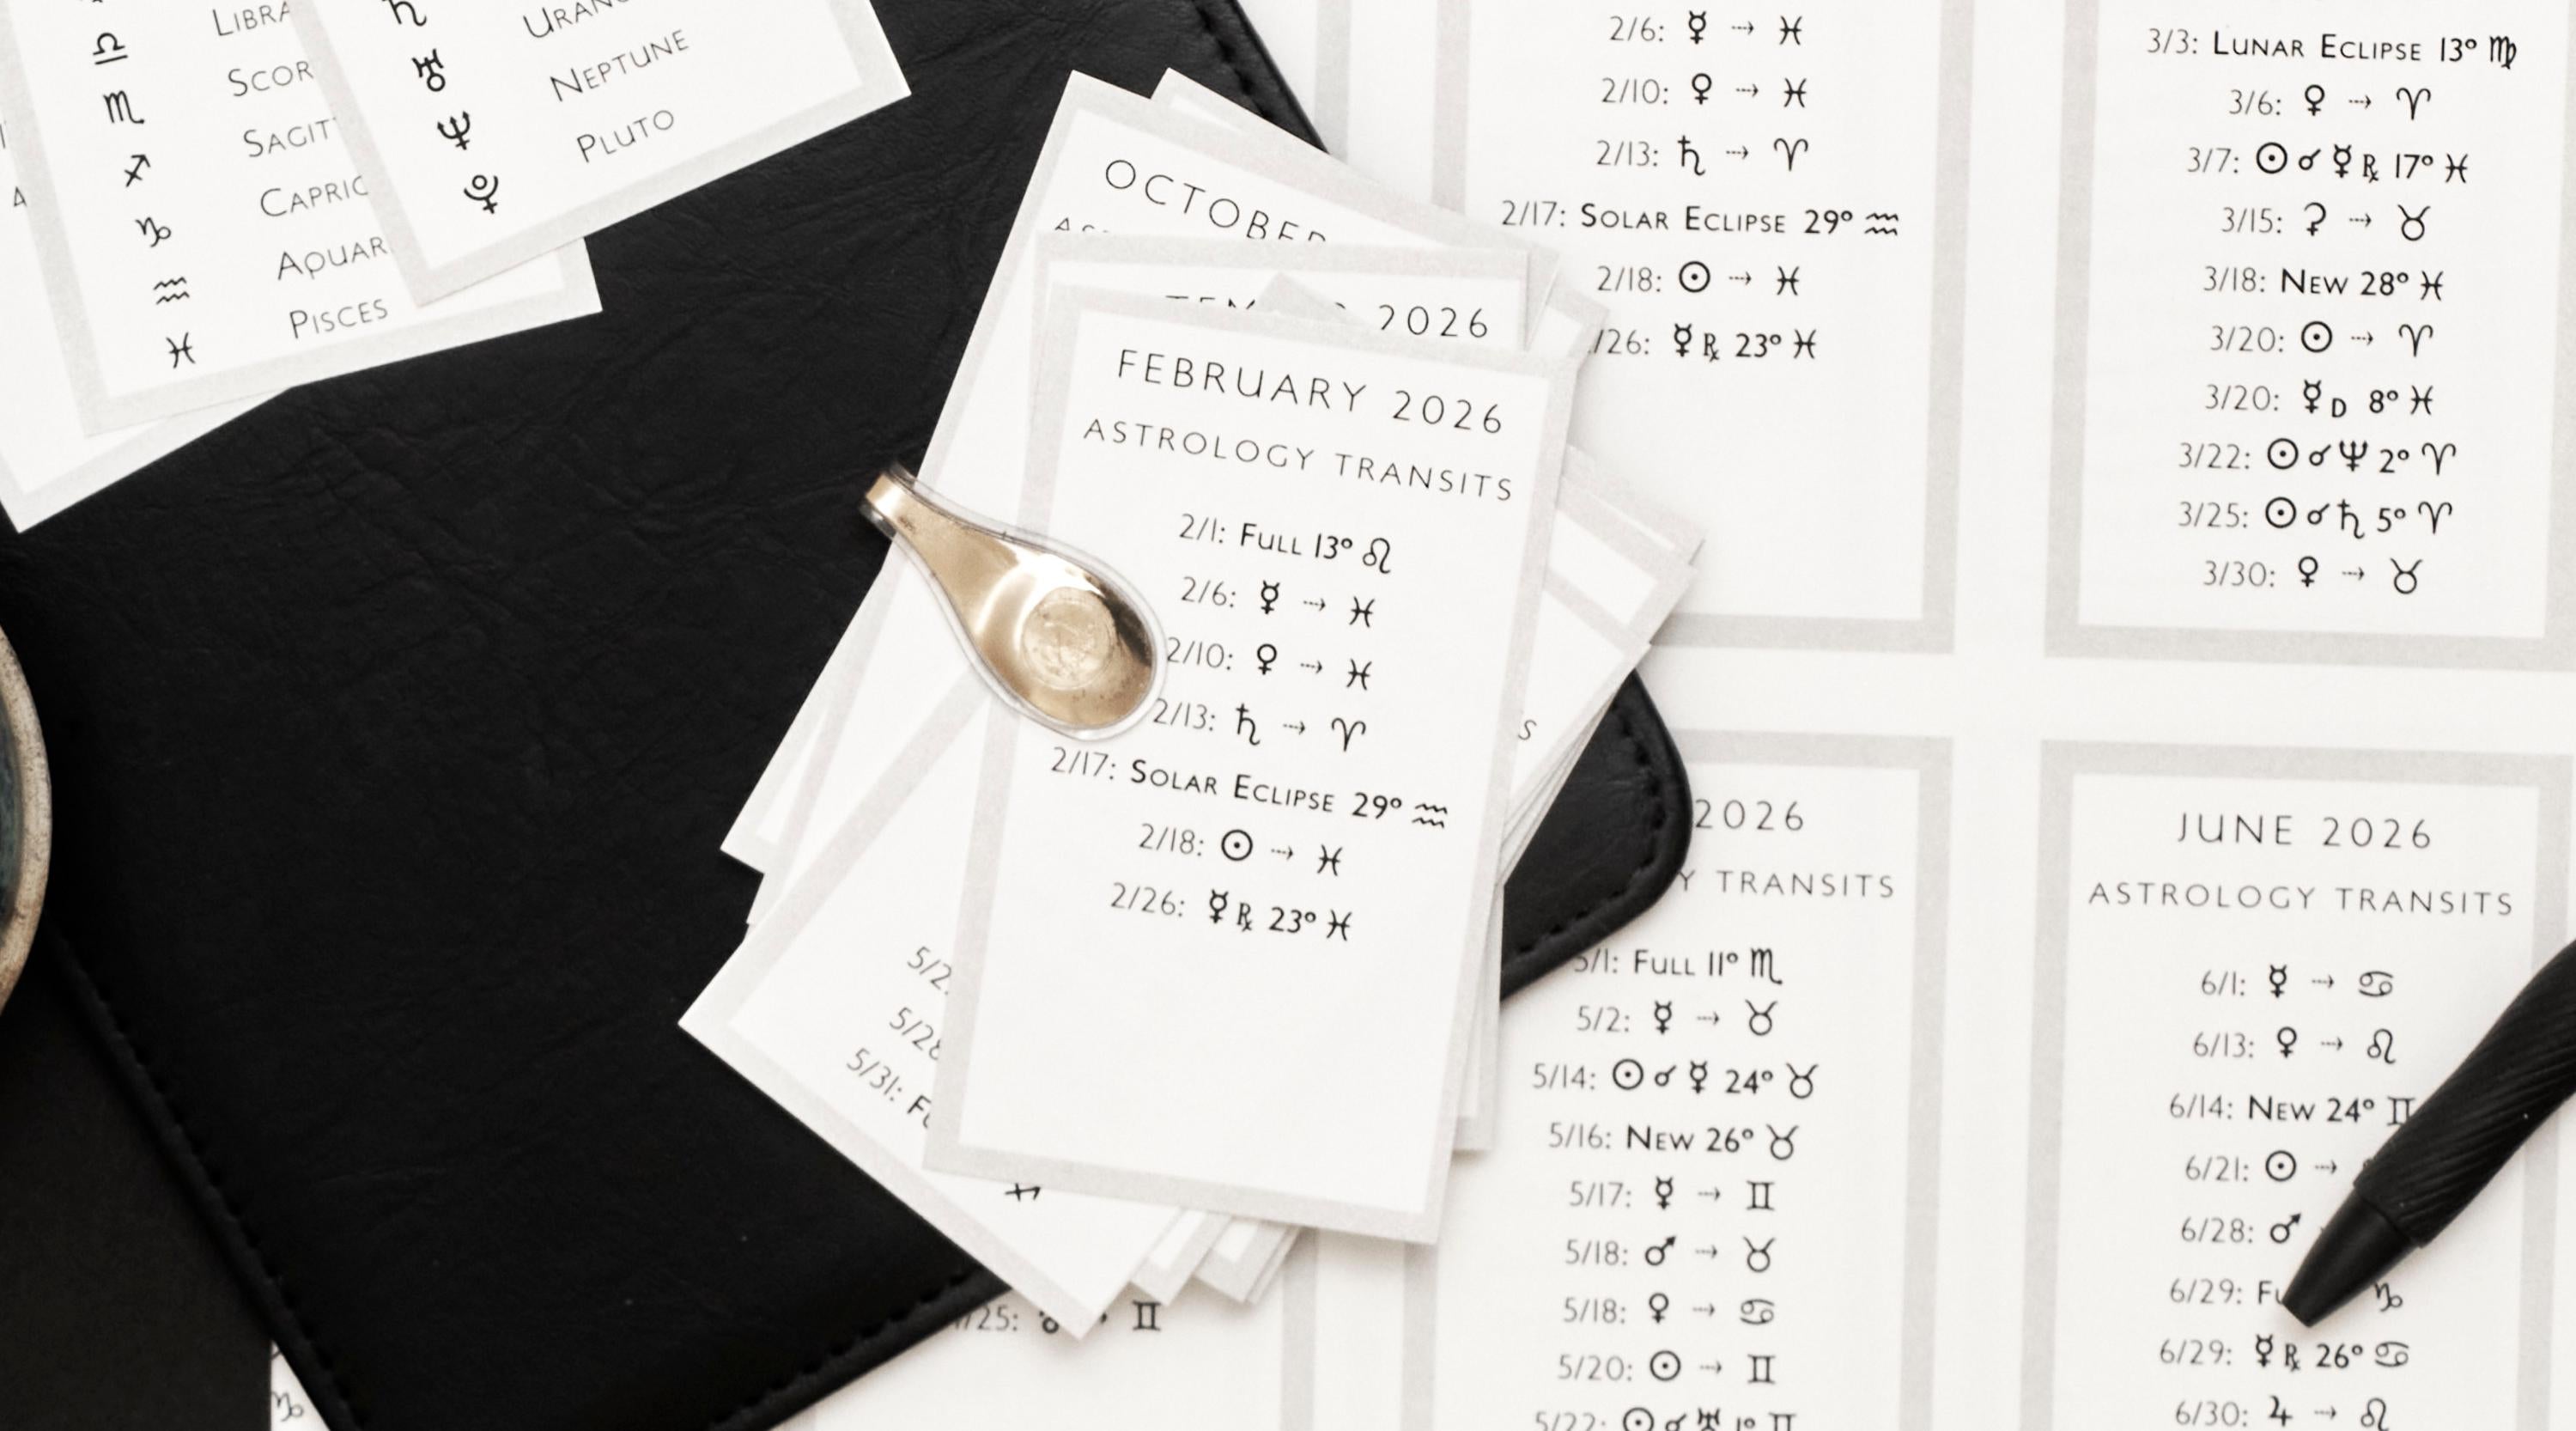 ♎ LIBRA
♏ SCOR
♐ SAGIT
♑ CAPRIC
♒ AQUAR
♓ PISCES
♄
♅ NEPTUNE
♆ PLUTO
♇
OCTOBER
2026
FEBRUARY 2026
ASTROLOGY TRANSITS
2/1: FULL 13° ♌
2/6: ☿ → ♓
2/10: ♀ → ♓
2/13: ♄ → ♈
2/17: SOLAR ECLIPSE 29° ♒
2/18: ☉ → ♓
2/26: ☿ ℞ 23° ♓
5/28
5/31:
♊
♑
2/6: ☿ → ♓
2/10: ♀ → ♓
2/13: ♄ → ♈
2/17: SOLAR ECLIPSE 29° ♒
2/18: ☉ → ♓
/26: ☿ ℞ 23° ♓
3/3: LUNAR ECLIPSE 13° ♍
3/6: ♀ → ♈
3/7: ☉ ☌ ☿ ℞ 17° ♓
3/15: ⚳ → ♉
3/18: NEW 28° ♓
3/20: ☉ → ♈
3/20: ☿ D 8° ♓
3/22: ☉ ☌ ♆ 2° ♈
3/25: ☉ ☌ ♄ 5° ♈
3/30: ♀ → ♉
2026
Y TRANSITS
5/1: FULL 11° ♏
5/2: ☿ → ♉
5/14: ☉ ☌ ☿ 24° ♉
5/16: NEW 26° ♉
5/17: ☿ → ♊
5/18: ♂ → ♉
5/18: ♀ → ♋
5/20: ☉ → ♊
5/22: ☉ ☌ ♅ 1° ♊
JUNE 2026
ASTROLOGY TRANSITS
6/1: ☿ → ♋
6/13: ♀ → ♌
6/14: NEW 24° ♊
6/21: ☉ →
6/28: ♂
6/29: FU ♑
6/29: ☿ ℞ 26° ♋
6/30: ♃ → ♌